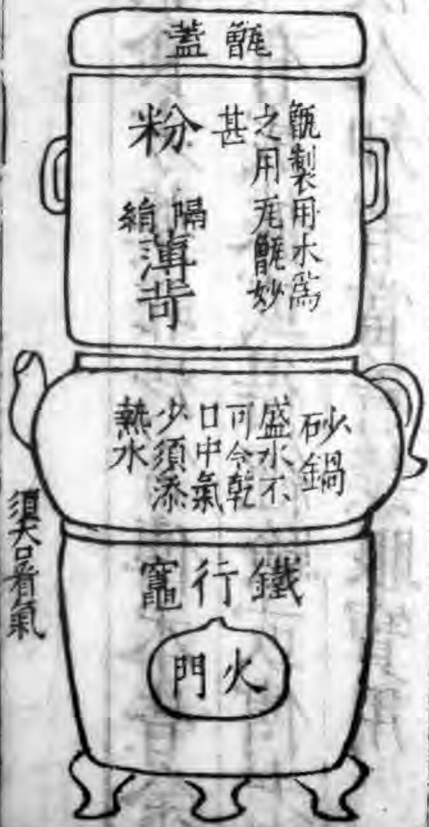 甑蓋
甑製用木爲
之用瓦甑妙
甚
粉
隔絹
薄荷
砂鍋
盛水不
可令乾
口中氣
少須添
熱水
須大口看氣
鐵行竈
火門